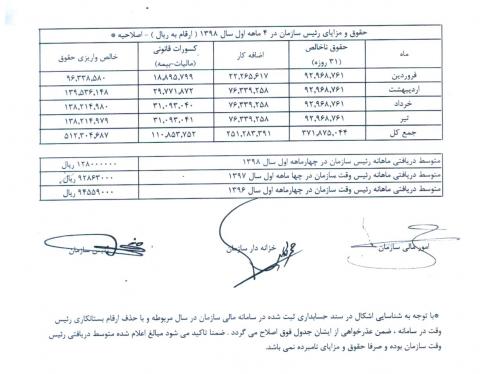 حقوق و مزایای رئیس سازمان در ۴ ماهه اول سال ۱۳۹۸ ( ارقام به ریال ) - اصلاحیه *
ماه	حقوق ناخالص (۳۱ روزه)	اضافه کار	کسورات قانونی (مالیات-بیمه)	خالص واریزی حقوق
فروردین	۹۲,۹۶۸,۷۶۱	۲۲,۲۶۵,۶۱۷	۱۸,۸۹۵,۷۹۹	۹۶,۳۳۸,۵۸۰
اردیبهشت	۹۲,۹۶۸,۷۶۱	۷۶,۳۳۹,۲۵۸	۲۹,۷۷۱,۸۷۲	۱۳۹,۵۳۶,۱۴۸
خرداد	۹۲,۹۶۸,۷۶۱	۷۶,۳۳۹,۲۵۸	۳۱,۰۹۳,۰۴۰	۱۳۸,۲۱۴,۹۸۰
تیر	۹۲,۹۶۸,۷۶۱	۷۶,۳۳۹,۲۵۸	۳۱,۰۹۳,۰۴۱	۱۳۸,۲۱۴,۹۷۹
جمع کل	۳۷۱,۸۷۵,۰۴۴	۲۵۱,۲۸۳,۳۹۱	۱۱۰,۸۵۳,۷۵۲	۵۱۲,۳۰۴,۶۸۷
متوسط دریافتی ماهانه رئیس سازمان در چهارماهه اول سال ۱۳۹۸	۱۲۸۰۰۰۰۰۰ ریال
متوسط دریافتی ماهانه رئیس وقت سازمان در چهارماهه اول سال ۱۳۹۷	۹۲۸۶۳۰۰۰ ریال
متوسط دریافتی ماهانه رئیس وقت سازمان در چهارماهه اول سال ۱۳۹۶	۹۴۵۵۹۰۰۰ ریال
امور مالی سازمان	خزانه دار سازمان	سازمان
*با توجه به شناسایی اشکال در سند حسابداری ثبت شده در سامانه مالی سازمان در سال مربوطه و با حذف ارقام بستانکاری رئیس
وقت در سامانه ، ضمن عذرخواهی از ایشان جدول فوق اصلاح می گردد . ضمنا تاکید می شود مبالغ اعلام شده متوسط دریافتی رئیس
وقت سازمان بوده و صرفا حقوق و مزایای نامبرده نمی باشد.